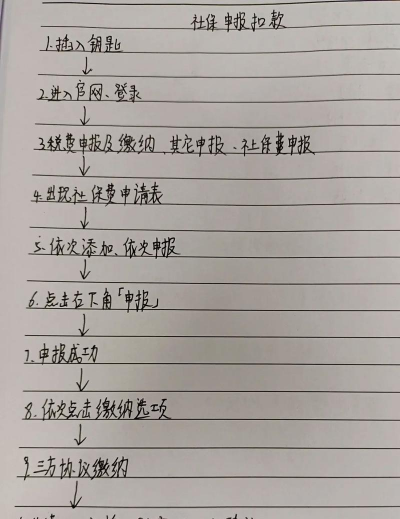 社保申报扣款
1.插入钥匙
↓
2.进入官网、登录
↓
3.税费申报及缴纳、其它申报、社保费申报
↓
4.出现社保费申请表
↓
5.依次添加、依次申报
↓
6.点击右下角「申报」
↓
7.申报成功
↓
8.依次点击缴纳选项
↓
9.三方协议缴纳
↓